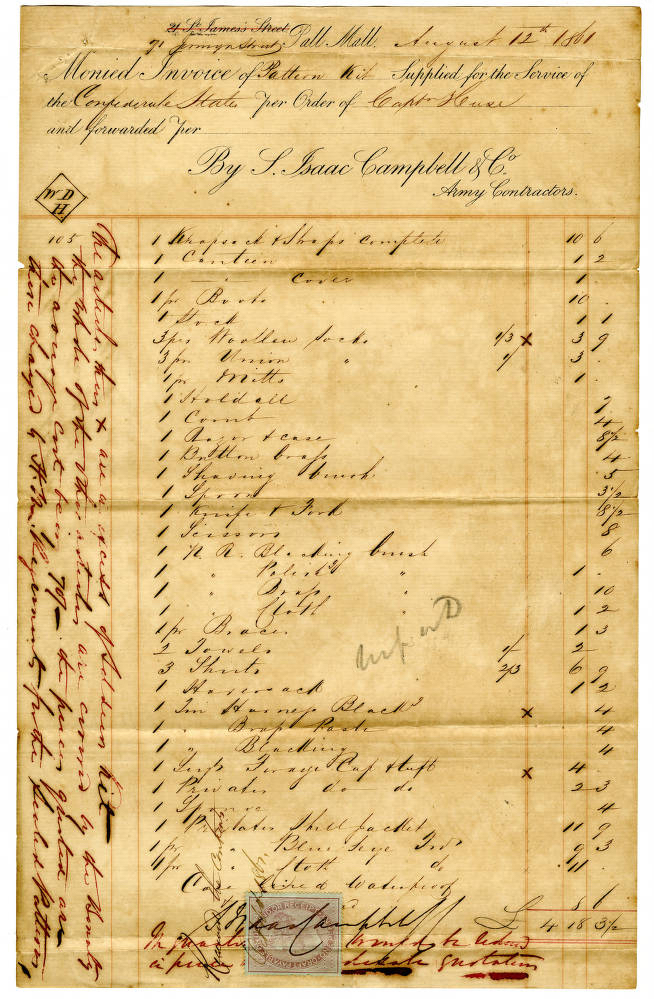 21 St James's Street
71 Jermyn Street, Pall Mall. August 12th 1861
Monied Invoice of Pattern Kit Supplied for the Service of
the Confederate States per Order of Captn Huse
and forwarded per
By S. Isaac Campbell & Co
Army Contractors.
W D
H
105
1 Knapsack & Straps complete 10 6
1 Canteen 1 2
1 — cover 1 .
1 pr Boots 10 .
1 Stock 1 1
3 prs Woollen Socks 1/3 x 3 9
3 pr Union " 1/ 3 .
1 pr Mitts 1 .
1 Holdall 7
1 Comb 4
1 Razor & case 8 1/2
1 Button brass 4
1 Shaving brush 5
1 Spoon 3 1/2
1 Knife & Fork 8 1/2
1 Scissors 8
1 Blacking brush 6
1 " Polishg " 1 .
1 " Brass " 10
1 " Cloth " 1 2
1 pr Braces 1 3
2 Towels 1/ 2 .
3 Shirts 2/3 6 9
1 Haversack 1 2
1 Tin Harness Blackg x 4
1 " Brass Paste 4
1 " Blacking 4
1 Sergts Forage Cap & tuft x 4 .
1 Privates do do 2 3
1 Sponge 4
1 Privates Shell Jacket 11 9
1 pr " Blue Serge Trs 9 3
1 pr " Cloth do 11 .
Case Lined Waterproof
5 6
S Isaac Campbell £ 4 18 3 1/2
The articles thus x are in excess of
the whole of the other articles are covered by the
the average cost being 70/- the prices quoted are
those charged to H. M. Regiments for the Sealed Pattern
would be
in price quotations